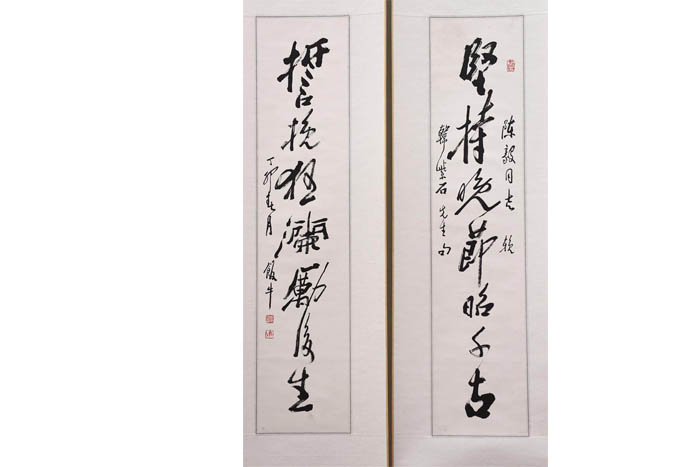 坚持晚節昭千古
陈毅同志輓
韓紫石先生句
誓挽狂瀾勵後生
丁卯春月 飯牛